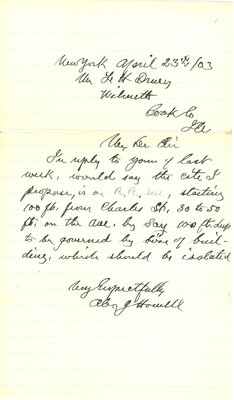 New York April 23rd/03
Mr. H Drury
Wilmette
Cook Co
Ill
My Dr Sir
In reply to yours of last
week, would say the site I
propose, is on Ave, starting
100 ft. from Charles St, 30 to 50
ft. on the Ave, by say 100 ft deep
to be governed by size of buil-
ding, which should be isolated
Very Respectfully
J Howell